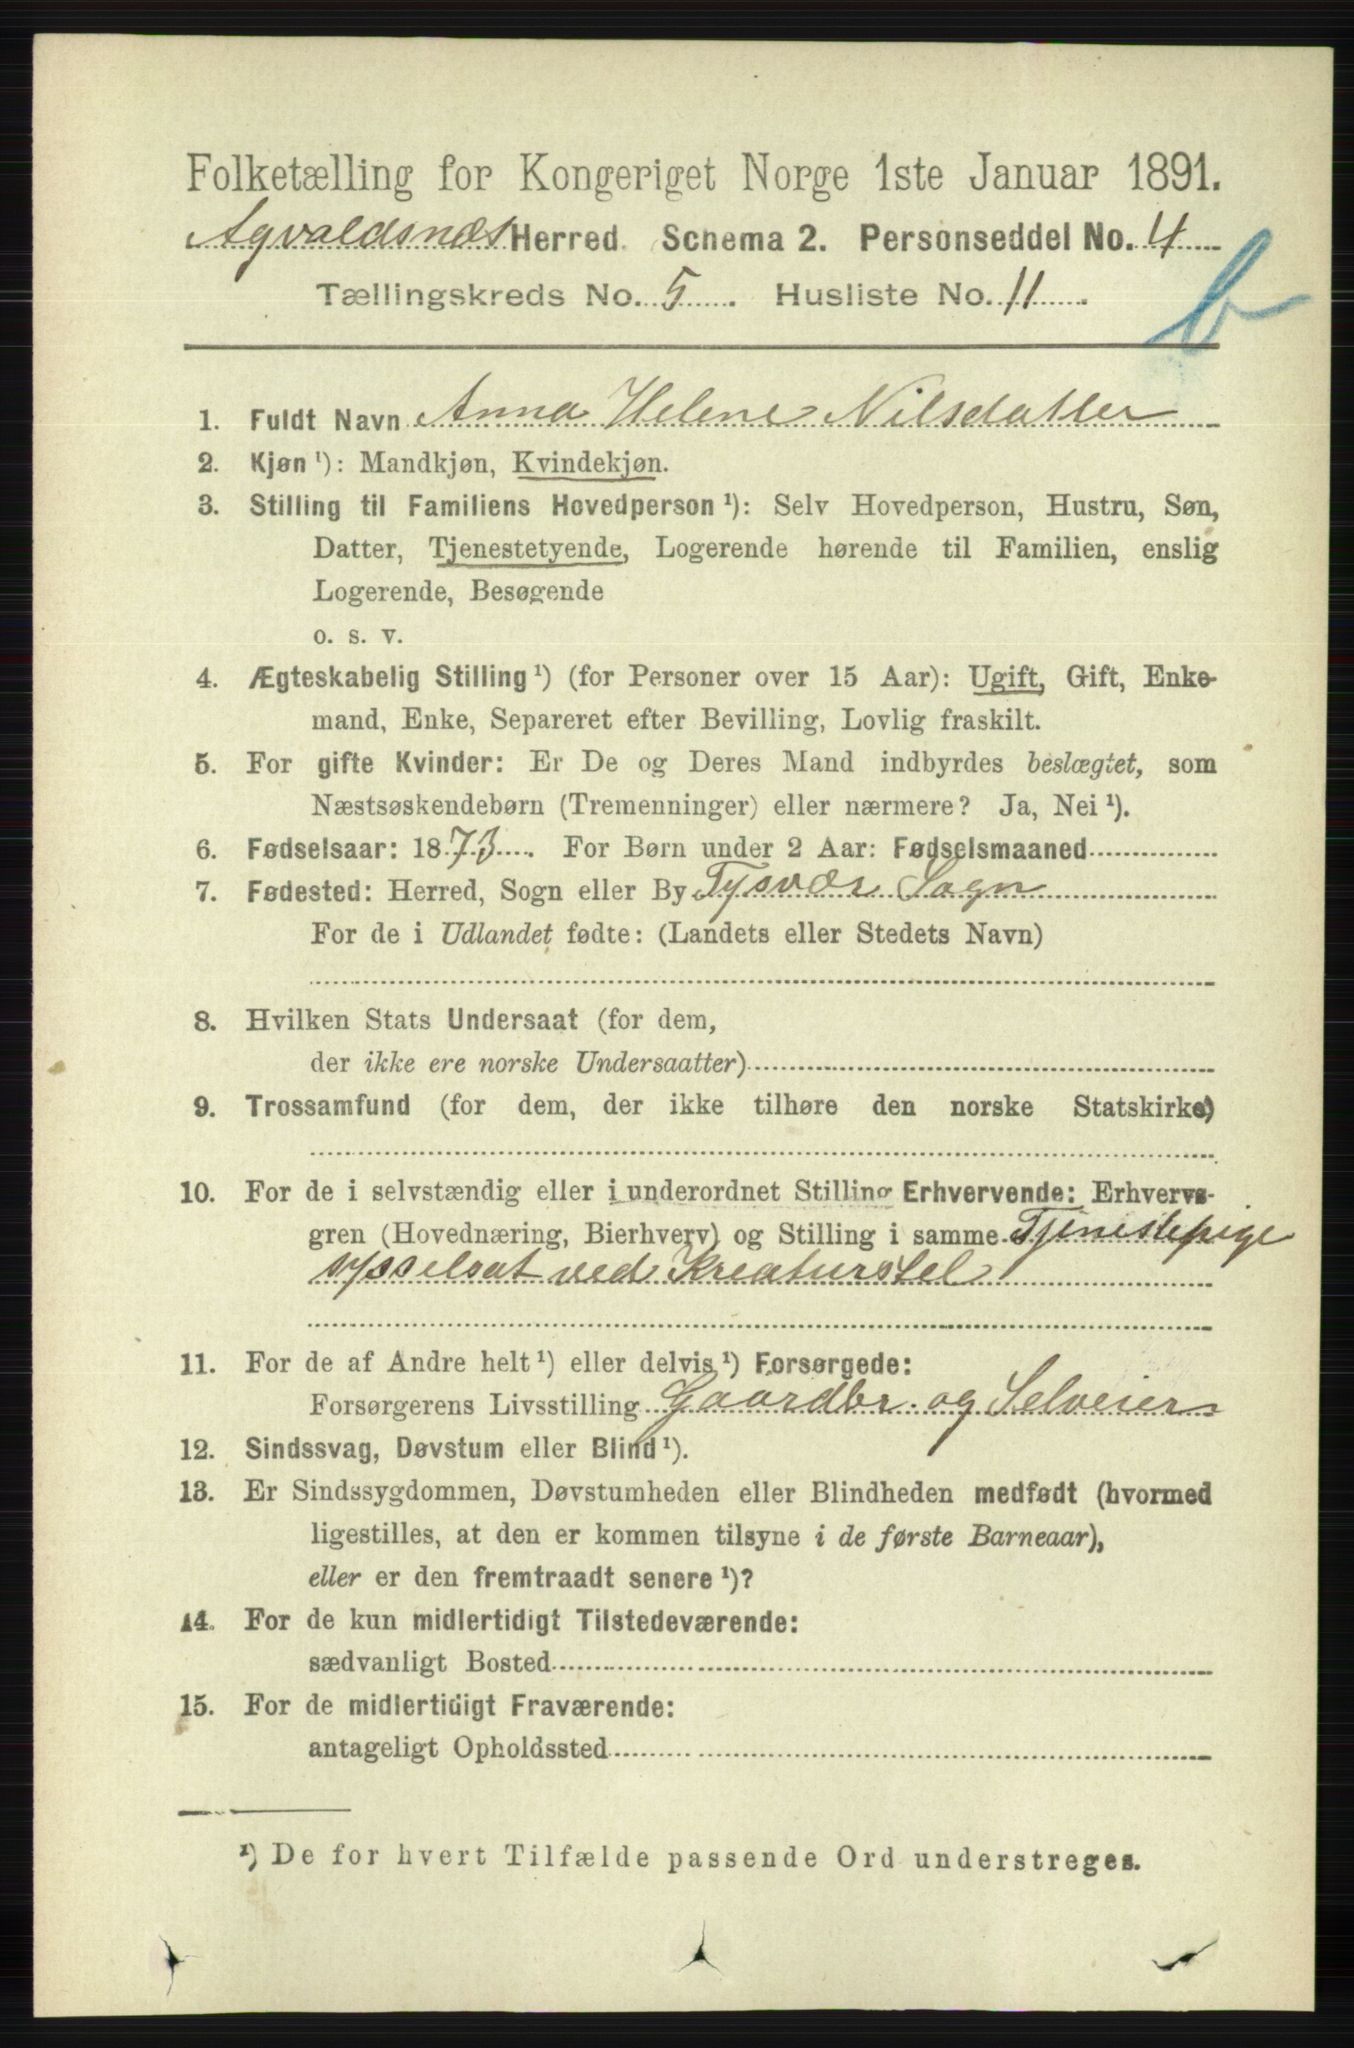 Folketælling for Kongeriget Norge 1ste Januar 1891.
Agvaldsnæs Herred. Schema 2. Personseddel No. 4
Tællingskreds No. 5. Husliste No. 11.
b
1. Fuldt Navn Anna Helene Nilsdatter
2. Kjøn ¹): Mandkjøn, Kvindekjøn.
3. Stilling til Familiens Hovedperson ¹): Selv Hovedperson, Hustru, Søn,
Datter, Tjenestetyende, Logerende hørende til Familien, enslig
Logerende, Besøgende
o. s. v.
4. Ægteskabelig Stilling ¹) (for Personer over 15 Aar): Ugift, Gift, Enke-
mand, Enke, Separeret efter Bevilling, Lovlig fraskilt.
5. For gifte Kvinder: Er De og Deres Mand indbyrdes beslægtet, som
Næstsøskendebørn (Tremenninger) eller nærmere? Ja, Nei ¹).
6. Fødselsaar: 1873. For Børn under 2 Aar: Fødselsmaaned
7. Fødested: Herred, Sogn eller By Tysvær Sogn
For de i Udlandet fødte: (Landets eller Stedets Navn)
8. Hvilken Stats Undersaat (for dem,
der ikke ere norske Undersaatter)
9. Trossamfund (for dem, der ikke tilhøre den norske Statskirke)
10. For de i selvstændig eller i underordnet Stilling Erhvervende: Erhvervs-
gren (Hovednæring, Bierhverv) og Stilling i samme Tjenestepige
sysselsat ved Kreaturstel
11. For de af Andre helt ¹) eller delvis ¹) Forsørgede:
Forsørgerens Livsstilling Gaardbr. og Selveier
12. Sindssvag, Døvstum eller Blind ¹).
13. Er Sindssygdommen, Døvstumheden eller Blindheden medfødt (hvormed
ligestilles, at den er kommen tilsyne i de første Barneaar),
eller er den fremtraadt senere ¹)?
14. For de kun midlertidigt Tilstedeværende:
sædvanligt Bosted
15. For de midlertidigt Fraværende:
antageligt Opholdssted
¹) De for hvert Tilfælde passende Ord understreges.